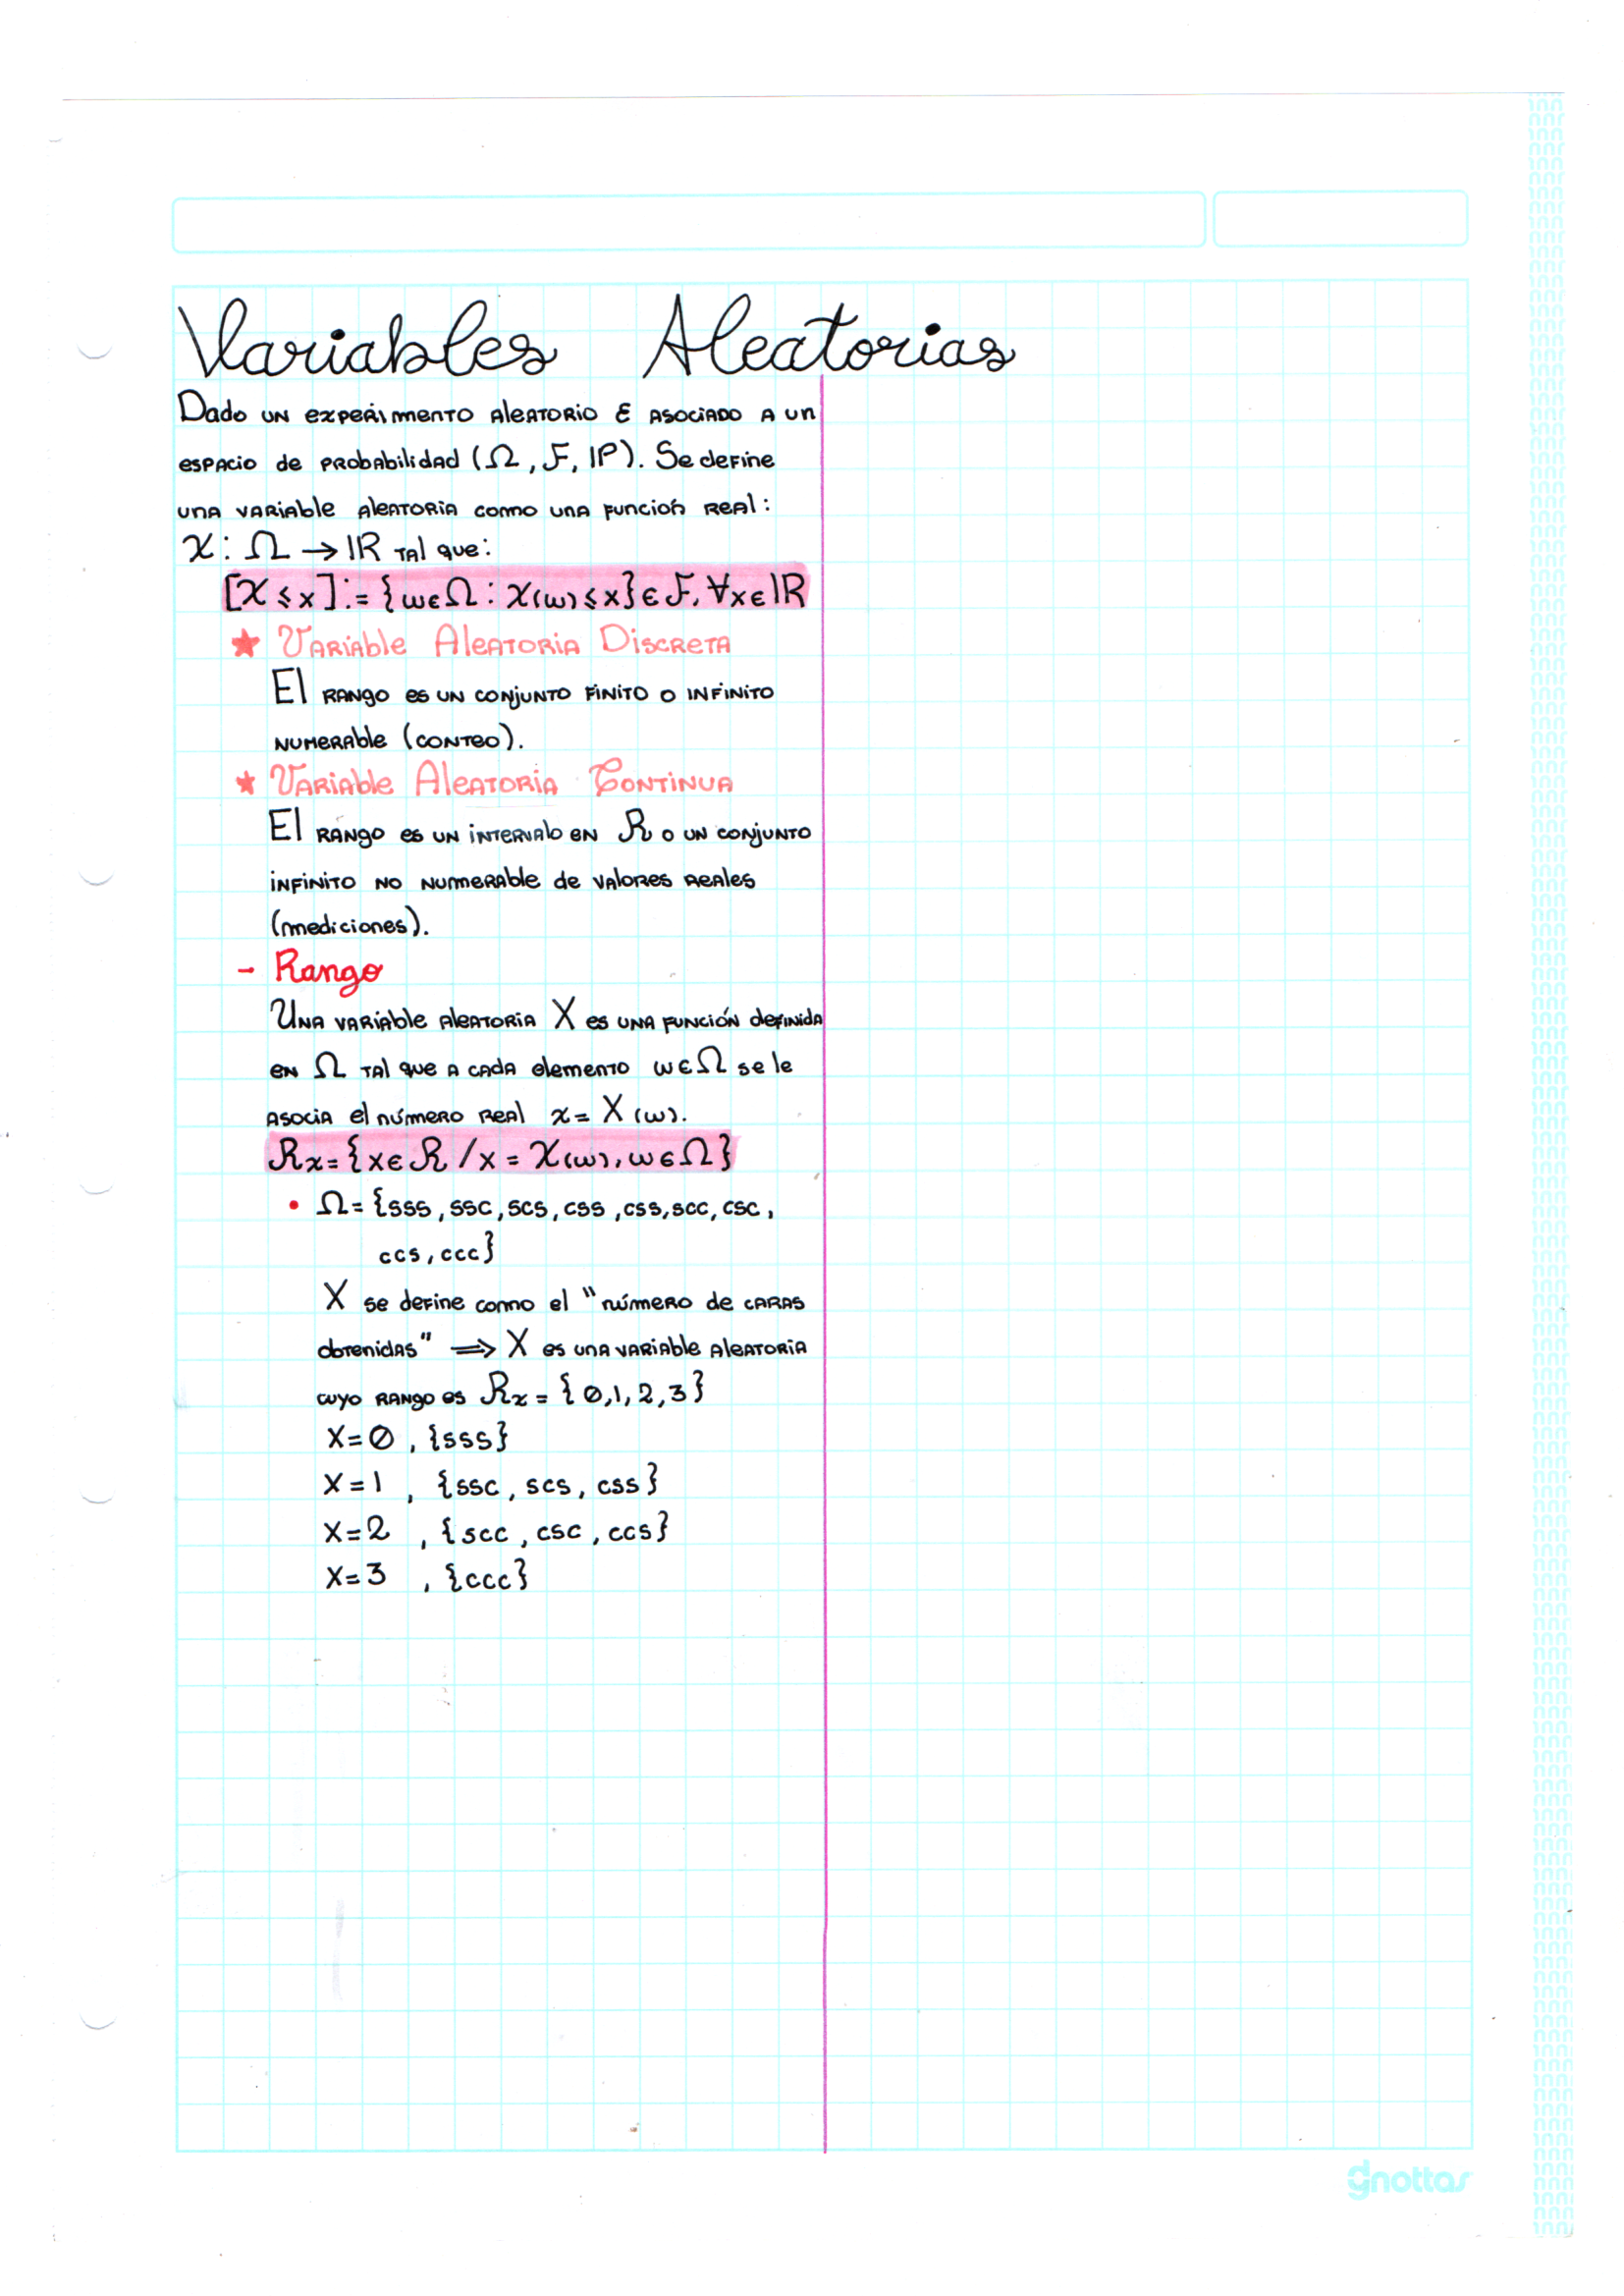 Variables Aleatorias
Dado un experimento aleatorio ε asociado a un
espacio de probabilidad (Ω, F, IP). Se define
una variable aleatoria como una función real:
X: Ω → IR tal que:
[X ≤ x] := {ω∈Ω : X(ω) ≤ x} ∈ F, ∀x∈IR
★ Variable Aleatoria Discreta
El rango es un conjunto finito o infinito
numerable (conteo).
★ Variable Aleatoria Continua
El rango es un intervalo en R o un conjunto
infinito no numerable de valores reales
(mediciones).
- Rango
Una variable aleatoria X es una función definida
en Ω tal que a cada elemento ω∈Ω se le
asocia el número real x = X(ω).
Rx = {x∈R / x = X(ω), ω∈Ω}
• Ω = {sss, ssc, scs, css, css, scc, csc,
ccs, ccc}
X se define como el "número de caras
obtenidas" ⟹ X es una variable aleatoria
cuyo rango es Rx = {0,1,2,3}
X=0, {sss}
X=1, {ssc, scs, css}
X=2, {scc, csc, ccs}
X=3, {ccc}
gnottas